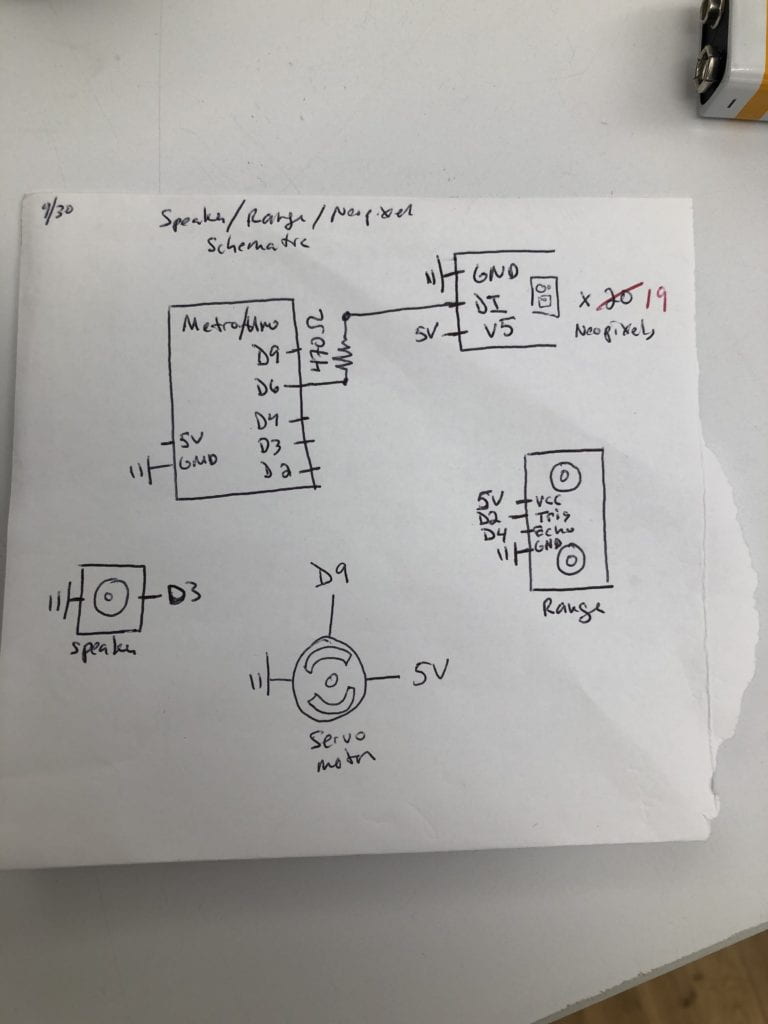 9/30
Speaker/Range/Neopixel
Schematic
Metro/Uno
D9
D6
D4
D3
D2
5V
GND
470Ω
GND
DI
5V V5
x 20 19
Neopixels
5V VCC
D2 Trig
D4 Echo
GND
Range
D3
Speaker
D9
5V
Servo
motor